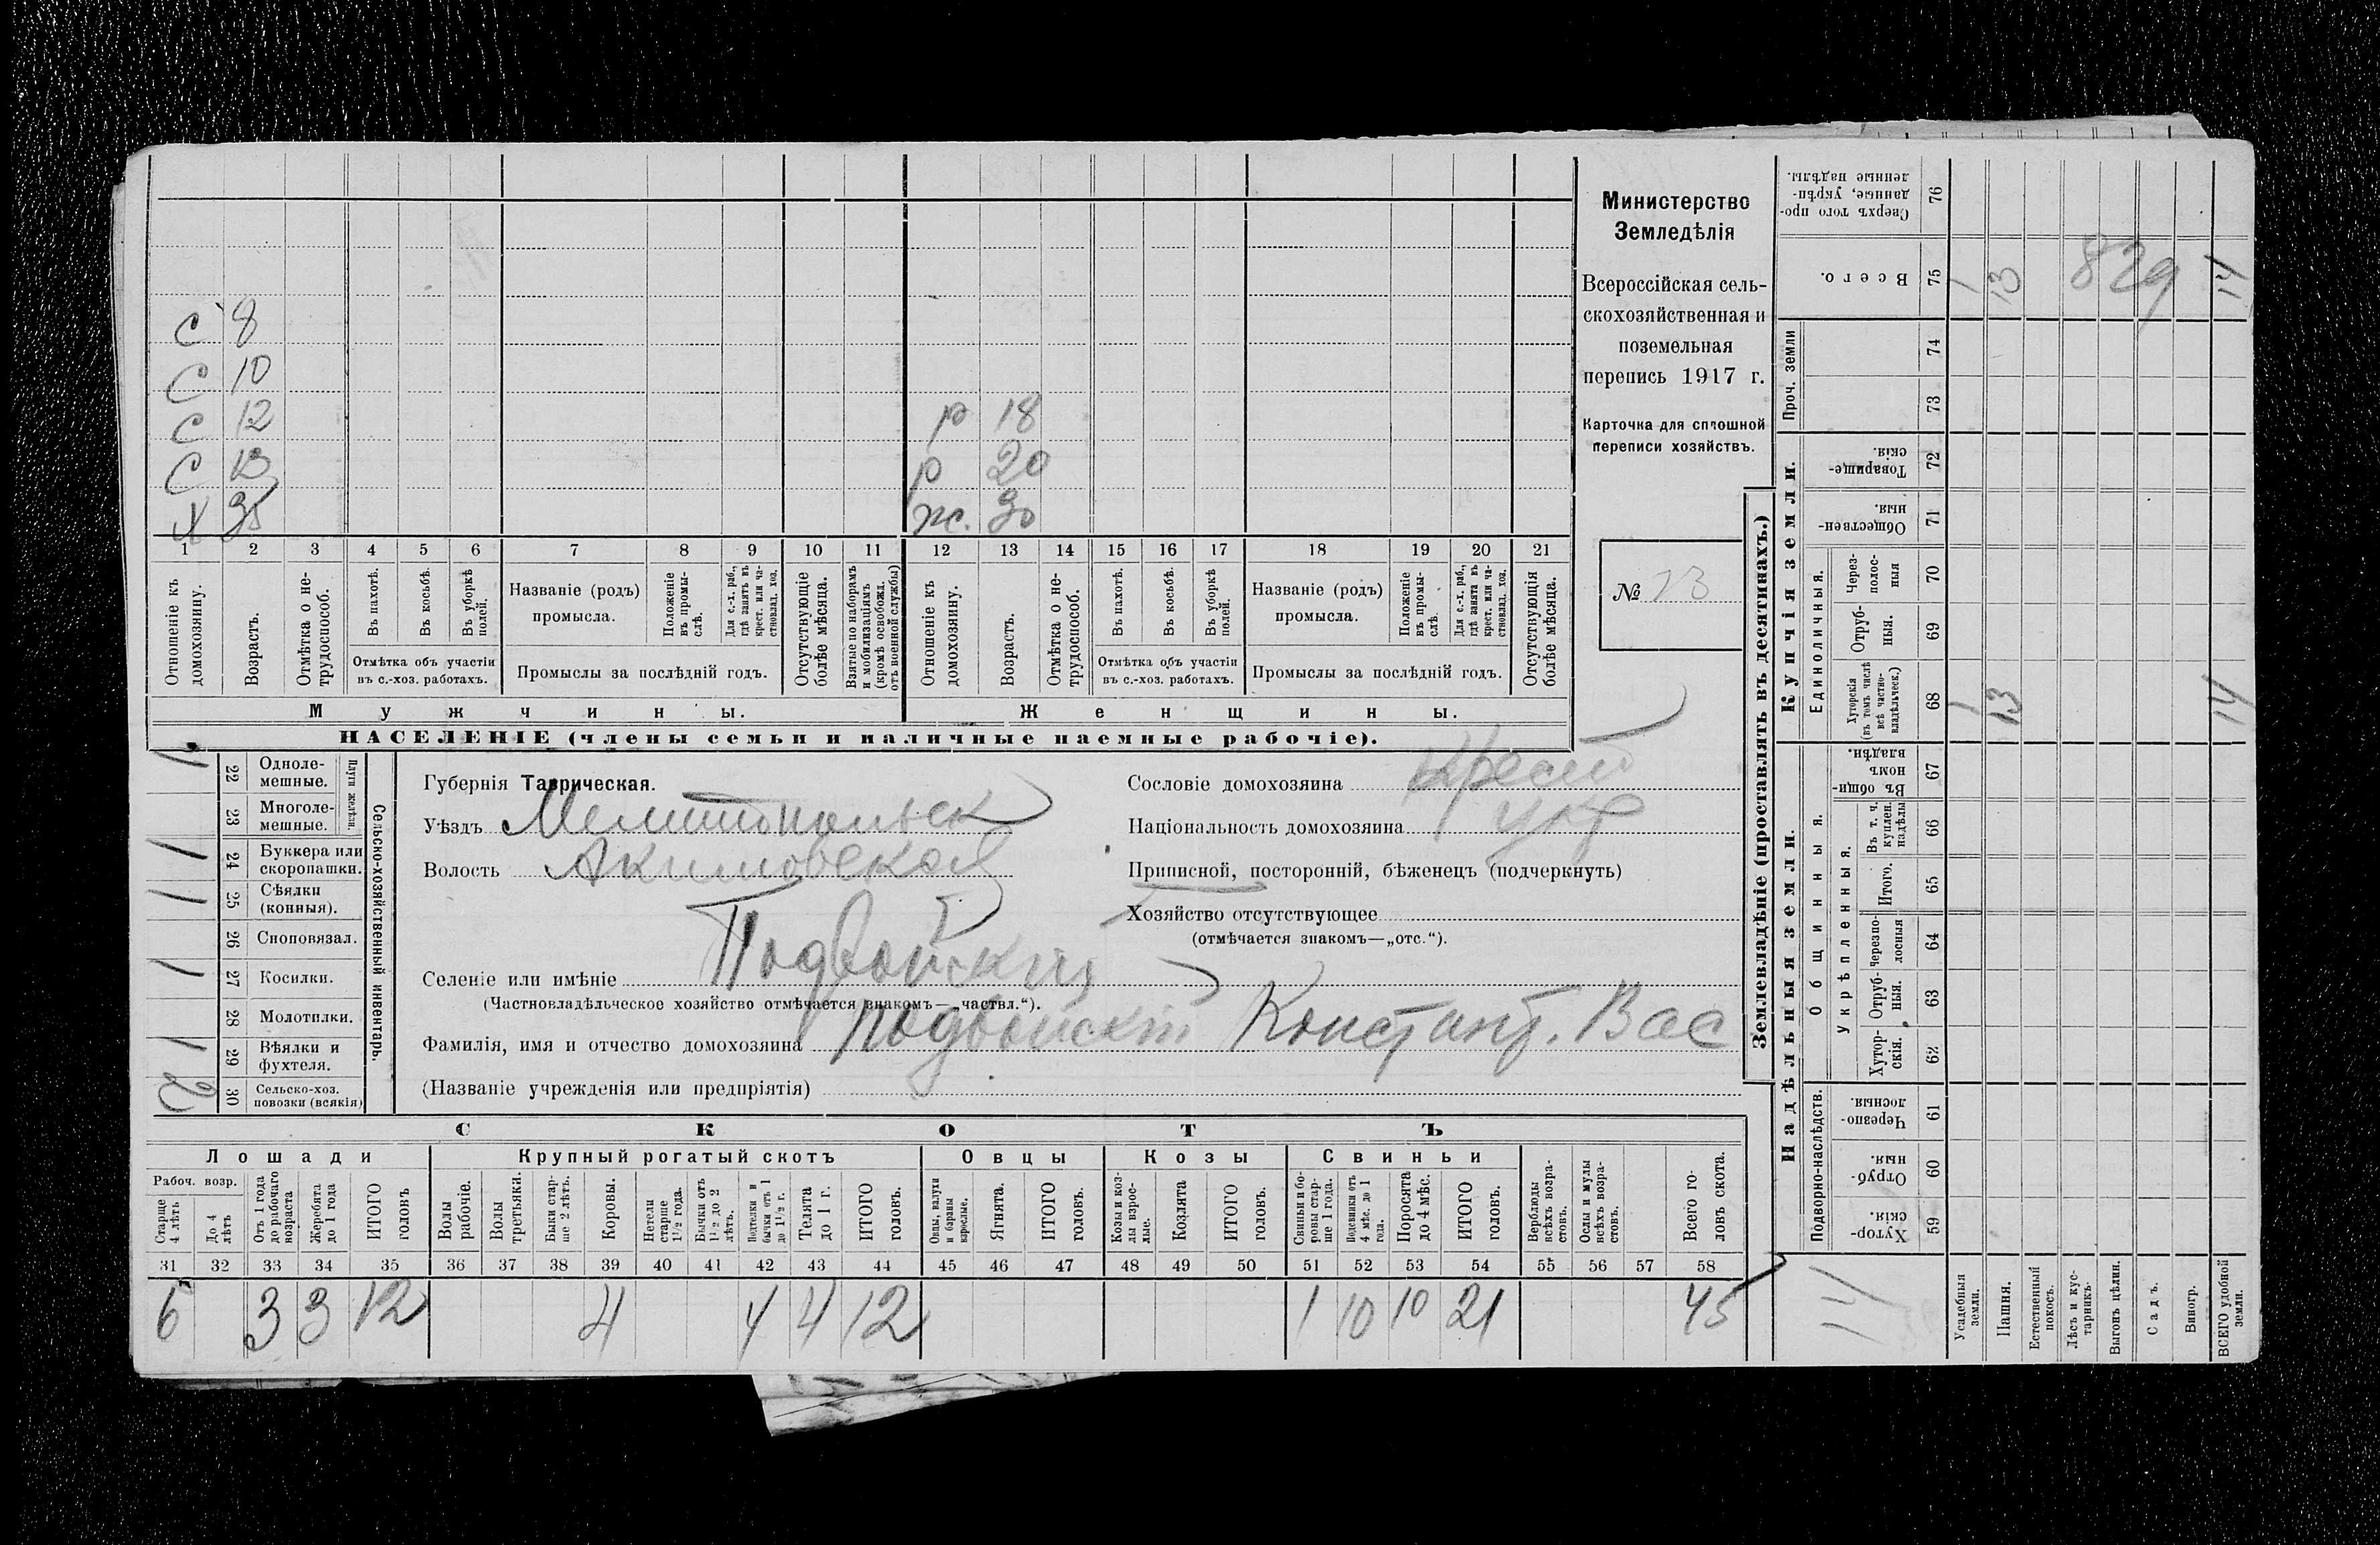 С 8
С 10
С 12 р 18
С 13 р 20
Х 35 ж. 30
1 2 3 4 5 6 7 8 9 10 11 12 13 14 15 16 17 18 19 20 21
Отношеніе къ домохозяину.
Возрастъ.
Отмѣтка о не-трудоспособ.
Въ пахотѣ.
Въ косьбѣ.
Въ уборкѣ полей.
Отмѣтка объ участіи
въ с.-хоз. работахъ.
Названіе (родъ)
промысла.
Положеніе въ промы-слѣ.
Для с.-х. раб., гдѣ занятъ въ крест. или ча-стновлад. хоз.
Промыслы за послѣдній годъ.
Отсутствующіе болѣе мѣсяца.
Взятые по наборамъ и мобилизаціямъ (кромѣ освобожд. отъ военной службы)
Отношеніе къ домохозяину.
Возрастъ.
Отмѣтка о не-трудоспособ.
Въ пахотѣ.
Въ косьбѣ.
Въ уборкѣ полей.
Отмѣтка объ участіи
въ с.-хоз. работахъ.
Названіе (родъ)
промысла.
Положеніе въ промы-слѣ.
Для с.-х. раб., гдѣ занята въ крест. или ча-стновлад. хоз.
Промыслы за послѣдній годъ.
Отсутствующія болѣе мѣсяца.
Мужчины.
Женщины.
НАСЕЛЕНІЕ (члены семьи и наличные наемные рабочіе).
Министерство
Земледѣлія
Всероссійская сель-
скохозяйственная и
поземельная
перепись 1917 г.
Карточка для сплошной
переписи хозяйствъ.
№ 23
Сельско-хозяйственный инвентарь.
Плуги желѣзн.
1 22 Одноле-мешные.
23 Многоле-мешные.
1 24 Буккера или скоропашки.
1 25 Сѣялки (конныя).
26 Сноповязал.
1 27 Косилки.
28 Молотилки.
1 29 Вѣялки и фухтеля.
2 30 Сельско-хоз. повозки (всякія)
Губернія Таврическая.
Уѣздъ Мелитопольск
Волость Акимовская
Селеніе или имѣніе Подвойский
(Частновладѣльческое хозяйство отмѣчается знакомъ—„частвл.“).
Сословіе домохозяина Крест
Національность домохозяина Укр
Приписной, посторонній, бѣженецъ (подчеркнуть)
Хозяйство отсутствующее
(отмѣчается знакомъ—„отс.“).
Фамилія, имя и отчество домохозяина Подвойскій Констант. Вас
(Названіе учрежденія или предпріятія)
СКОТЪ
Лошади
Крупный рогатый скотъ
Овцы
Козы
Свиньи
Рабоч. возр.
Старше 4 лѣтъ
До 4 лѣтъ
Отъ 1 года до рабочаго возраста
Жеребята до 1 года
ИТОГО головъ
Волы рабочіе.
Волы третьяки.
Быки стар-ше 2 лѣтъ.
Коровы.
Нетели старше 1½ года.
Бычки отъ 1½ до 2 лѣтъ.
Подтелки и бычки отъ 1 до 1½ г.
Телята до 1 г.
ИТОГО головъ.
Овцы, валухи и бараны взрослые.
Ягнята.
ИТОГО головъ.
Козы и коз-лы взрос-лые.
Козлята
ИТОГО головъ.
Свиньи и бо-ровы стар-ше 1 года.
Подсвинки отъ 4 мѣс. до 1 года.
Поросята до 4 мѣс.
ИТОГО головъ.
Верблюды всѣхъ возра-стовъ.
Ослы и мулы всѣхъ возра-стовъ.
Всего го-ловъ скота.
31 32 33 34 35 36 37 38 39 40 41 42 43 44 45 46 47 48 49 50 51 52 53 54 55 56 57 58
6 3 3 12 4 4 4 12 1 10 10 21 45
Землевладѣніе (проставлять въ десятинахъ.)
Купчія земли.
Надѣльныя земли.
Проч. земли
Единоличныя.
Общинныя.
Укрѣпленныя.
Подворно-наслѣдств.
Сверхъ того про-данные, укрѣп-ленные надѣлы. 76
Всего. 75 1 13 829 14
74
73
Товарище-скія. 72
Обществен-ныя. 71
Через-полос-ныя 70
Отруб-ныя. 69
Хуторскія (въ томъ числѣ всѣ частно-владѣльческ.) 68 1 13 14
Въ общи-номъ владѣн. 67
Въ т. ч. куплен. надѣлы 66
Итого. 65
Черезпо-лосныя 64
Отруб-ныя. 63
Хутор-скія. 62
Черезпо-лосныя. 61
Отруб-ныя. 60
Хутор-скія. 59
14
Усадебныя земли.
Пашня.
Естественный покосъ.
Лѣсъ и кус-тарникъ.
Выгонъ цѣлин.
Садъ.
Виногр.
ВСЕГО удобной земли.